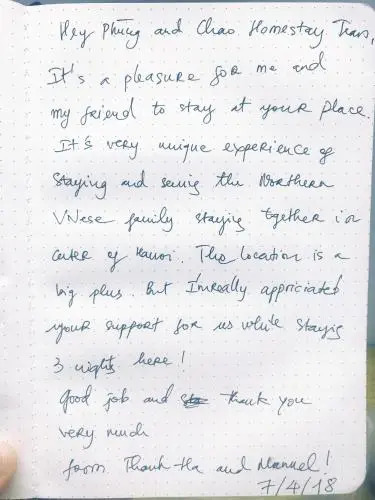 Hey Phũng and Chao Homestay Team,
It's a pleasure for me and
my friend to stay at your place.
It's very unique experience of
staying and seeing the Northern
VNese family staying together in
center of Hanoi. The location is a
big plus. But I'm really appriciated
your support for us while staying
3 nights here!
Good job and thank you
very much
form Thanh Ha and Manuel!
7/4/18